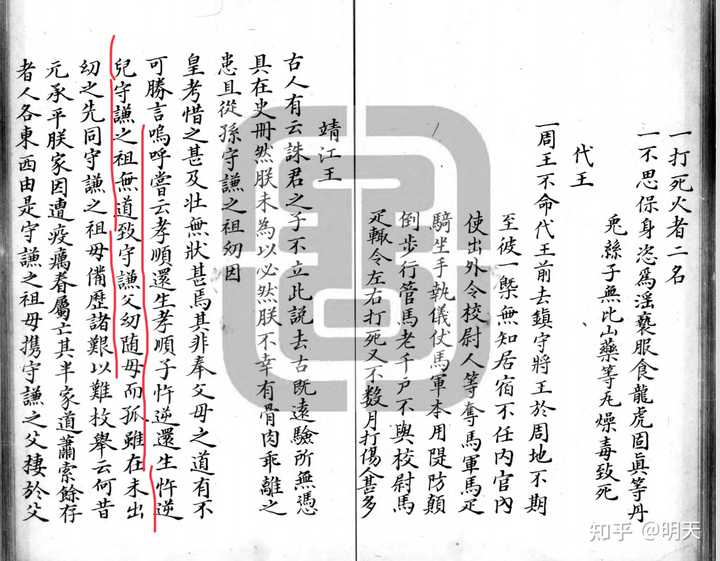 一打死火者二名
一不思保身恣爲淫褻服食龍虎固眞等丹
兎絲子無比山藥等丸燥毒致死
代王
一周王不命代王前去鎮守將王於周地不期
至彼一槩無知居宿不任内官内
使出外令校尉人等奪馬軍馬疋
騎坐手執儀仗馬軍本用隄防顛
倒步行管馬老千戶不與校尉馬
疋輙令左右打死又不數月打傷人甚多
靖江王
古人有云誅君之子不立此說去古既遠驗所無憑
具在史冊然朕未為以必然朕不幸有骨肉乖離之
患且從孫守謙之祖幼因
皇考惜之甚及壯無狀甚焉其非奉父母之道有不
可勝言嗚呼嘗云孝順還生孝順子忤逆還生忤逆
兒守謙之祖無道致守謙父幼隨母而孤雖在未出
幼之先同守謙之祖母僃歷諸艱以難枚舉云何昔
元承平朕家因遭疫癘眷屬亡其半家道蕭索餘存
者人各東西由是守謙之祖母携守謙之父棲於父
知乎 @明天